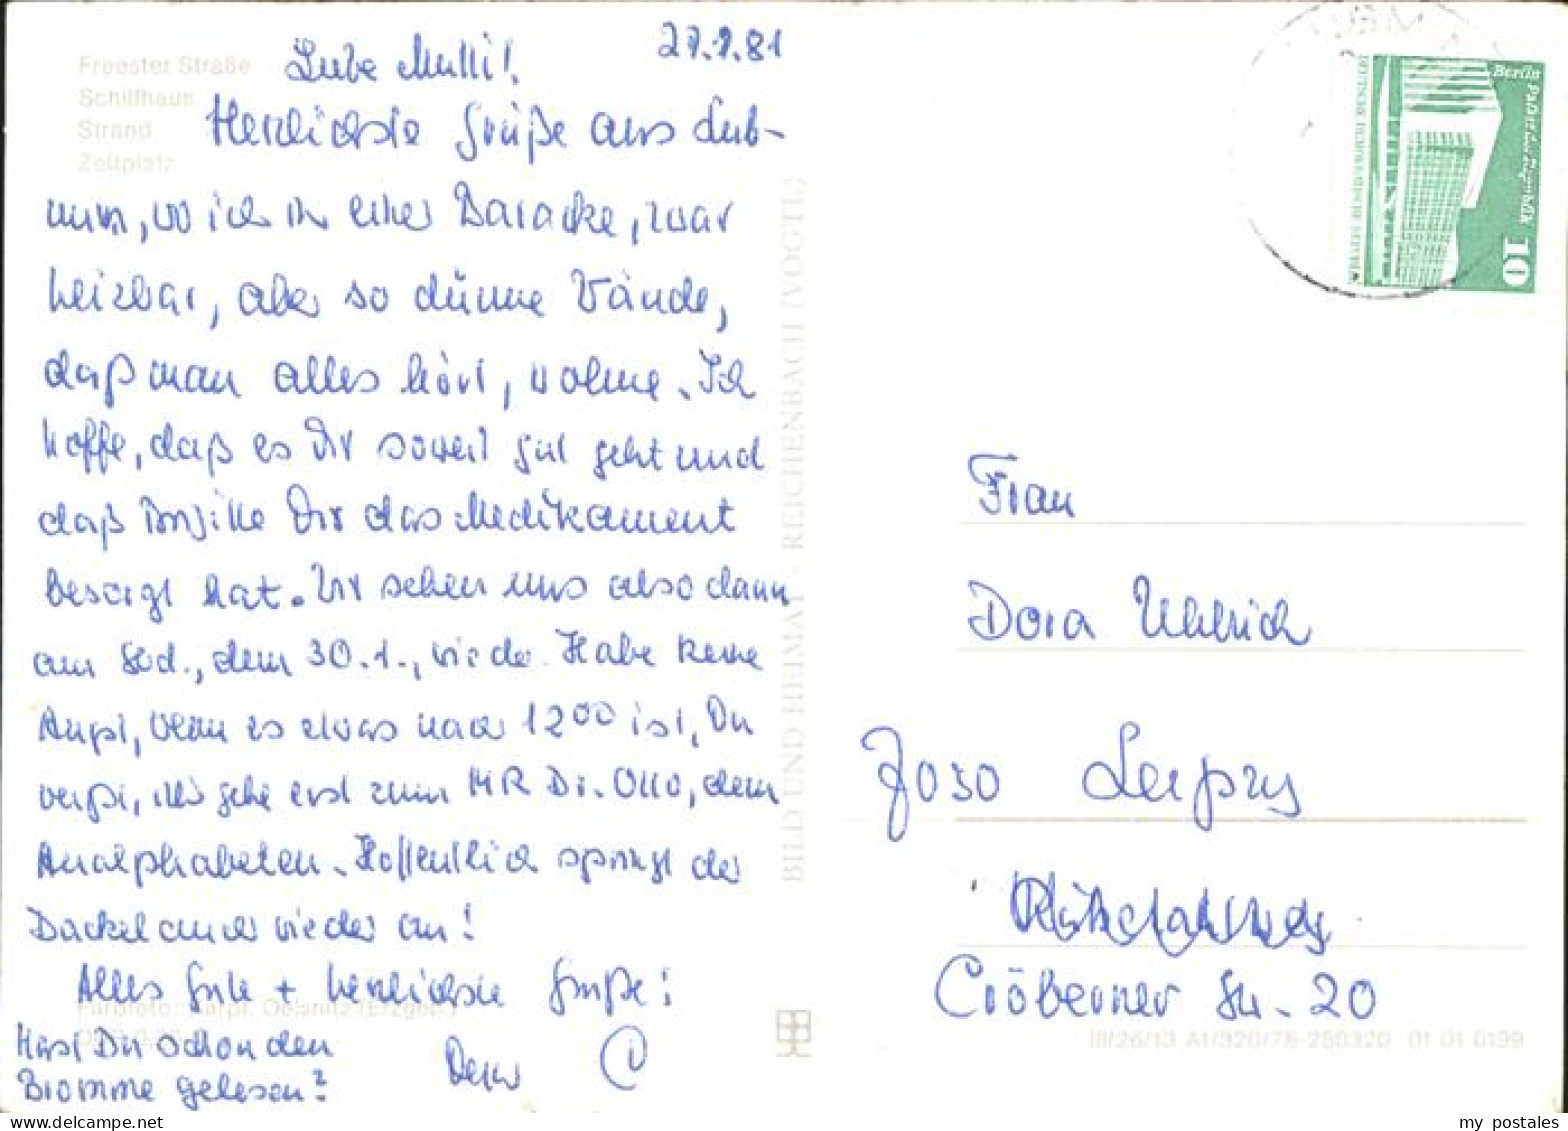 Freester Straße
Schiffhaus
Strand
Zeltplatz
27.1.81
Liebe Mutti!
Herzlichste Grüße aus Lub-
min, wo ich in einer Baracke, zwar
heizbar, aber so dünne Wände,
daß man alles hört, wohne. Ich
hoffe, daß es Dir soweit gut geht und
daß Dir das Medikament
besorgt hat. Wir sehen uns also dann
am dem 30.1., wieder. Habe keine
Angst, wenn es etwas nach 12⁰⁰ ist, Du
weißt, ich gehe erst zum MR Dr. Otto, dem
Analphabeten. Hoffentlich springt der
Dackel auch wieder an!
Alles Gute + herzlichste Grüße:
Dein
Hast Du schon den
Bromme gelesen?
BILD UND HEIMAT · REICHENBACH (VOGTL)
III/26/13 A1/320/78-280320 01 01 0199
Berlin Palast der Republik
10
DEUTSCHE DEMOKRATISCHE REPUBLIK
Frau
Dora Uhlrich
7030 Leipzig
Cröberner Str. 20
my postales